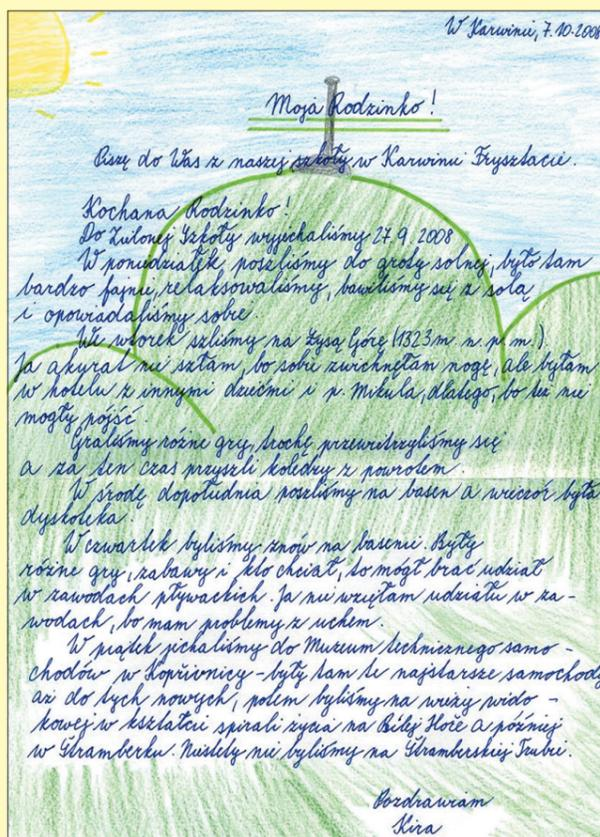 W Karwinie, 7.10.2008
Moja Rodzinko!
Piszę do Was z naszej szkoły w Karwinie Frysztacie.
Kochana Rodzinko!
Do Zielonej Szkoły wyjechaliśmy 27.9.2008
W poniedziałek, poszliśmy do groty solnej, było tam
bardzo fajnie, relaksowaliśmy, bawiliśmy się z solą
i opowiadaliśmy sobie.
We wtorek szliśmy na Łysą Górę (1323 m. n. p. m.).
Ja akurat nie szłam, bo sobie zwichnęłam nogę, ale byłam
w hotelu z innymi dziećmi i p. Mikula, dlatego, bo też nie
mogły pójść.
Graliśmy różne gry, trochę przewietrzyliśmy się
a za ten czas przyszli koledzy z powrotem.
W środę dopołudnia poszliśmy na basen a wieczór była
dyskoteka.
W czwartek byliśmy znów na basenie. Były
różne gry, zabawy i kto chciał, to mógł brać udział
w zawodach pływackich. Ja nie wzięłam udziału w za-
wodach, bo mam problemy z uchem.
W piątek jechaliśmy do Muzeum technicznego samo-
chodów w Kopřivnicy - były tam te najstarsze samochody
aż do tych nowych, potem byliśmy na wieży wido-
kowej w kształcie spirali życia na Bílej Hoře a później
w Štramberku. Niestety nie byliśmy na Štramberskiej Trubie.
Pozdrawiam
Kira